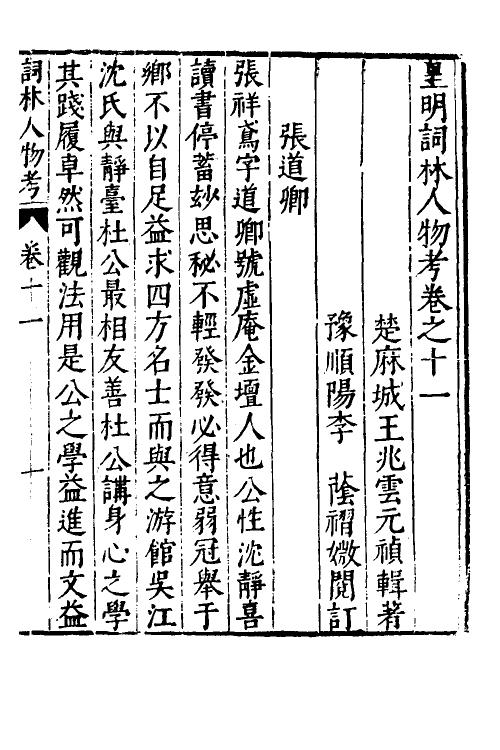 皇明詞林人物考卷之十一
楚麻城王兆雲元禎輯著
豫順陽李　蔭襵嫩閱訂
張道卿
張祥鳶字道卿號虛庵金壇人也公性沈靜喜
讀書停蓄玅思秘不輕發發必得意弱冠舉于
鄉不以自足益求四方名士而與之游館吳江
沈氏與靜臺杜公最相友善杜公講身心之學
其踐履卓然可觀法用是公之學益進而文益
詞林人物考　卷十一　一